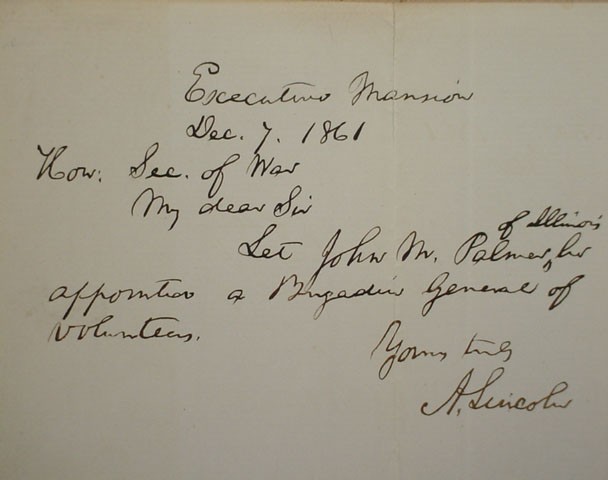 Executive Mansion
Dec. 7. 1861
Hon. Sec. of War
My dear Sir
of Illinois
Let John M. Palmer, be
appointed a Brigadier General of
volunteers.
Yours truly
A. Lincoln